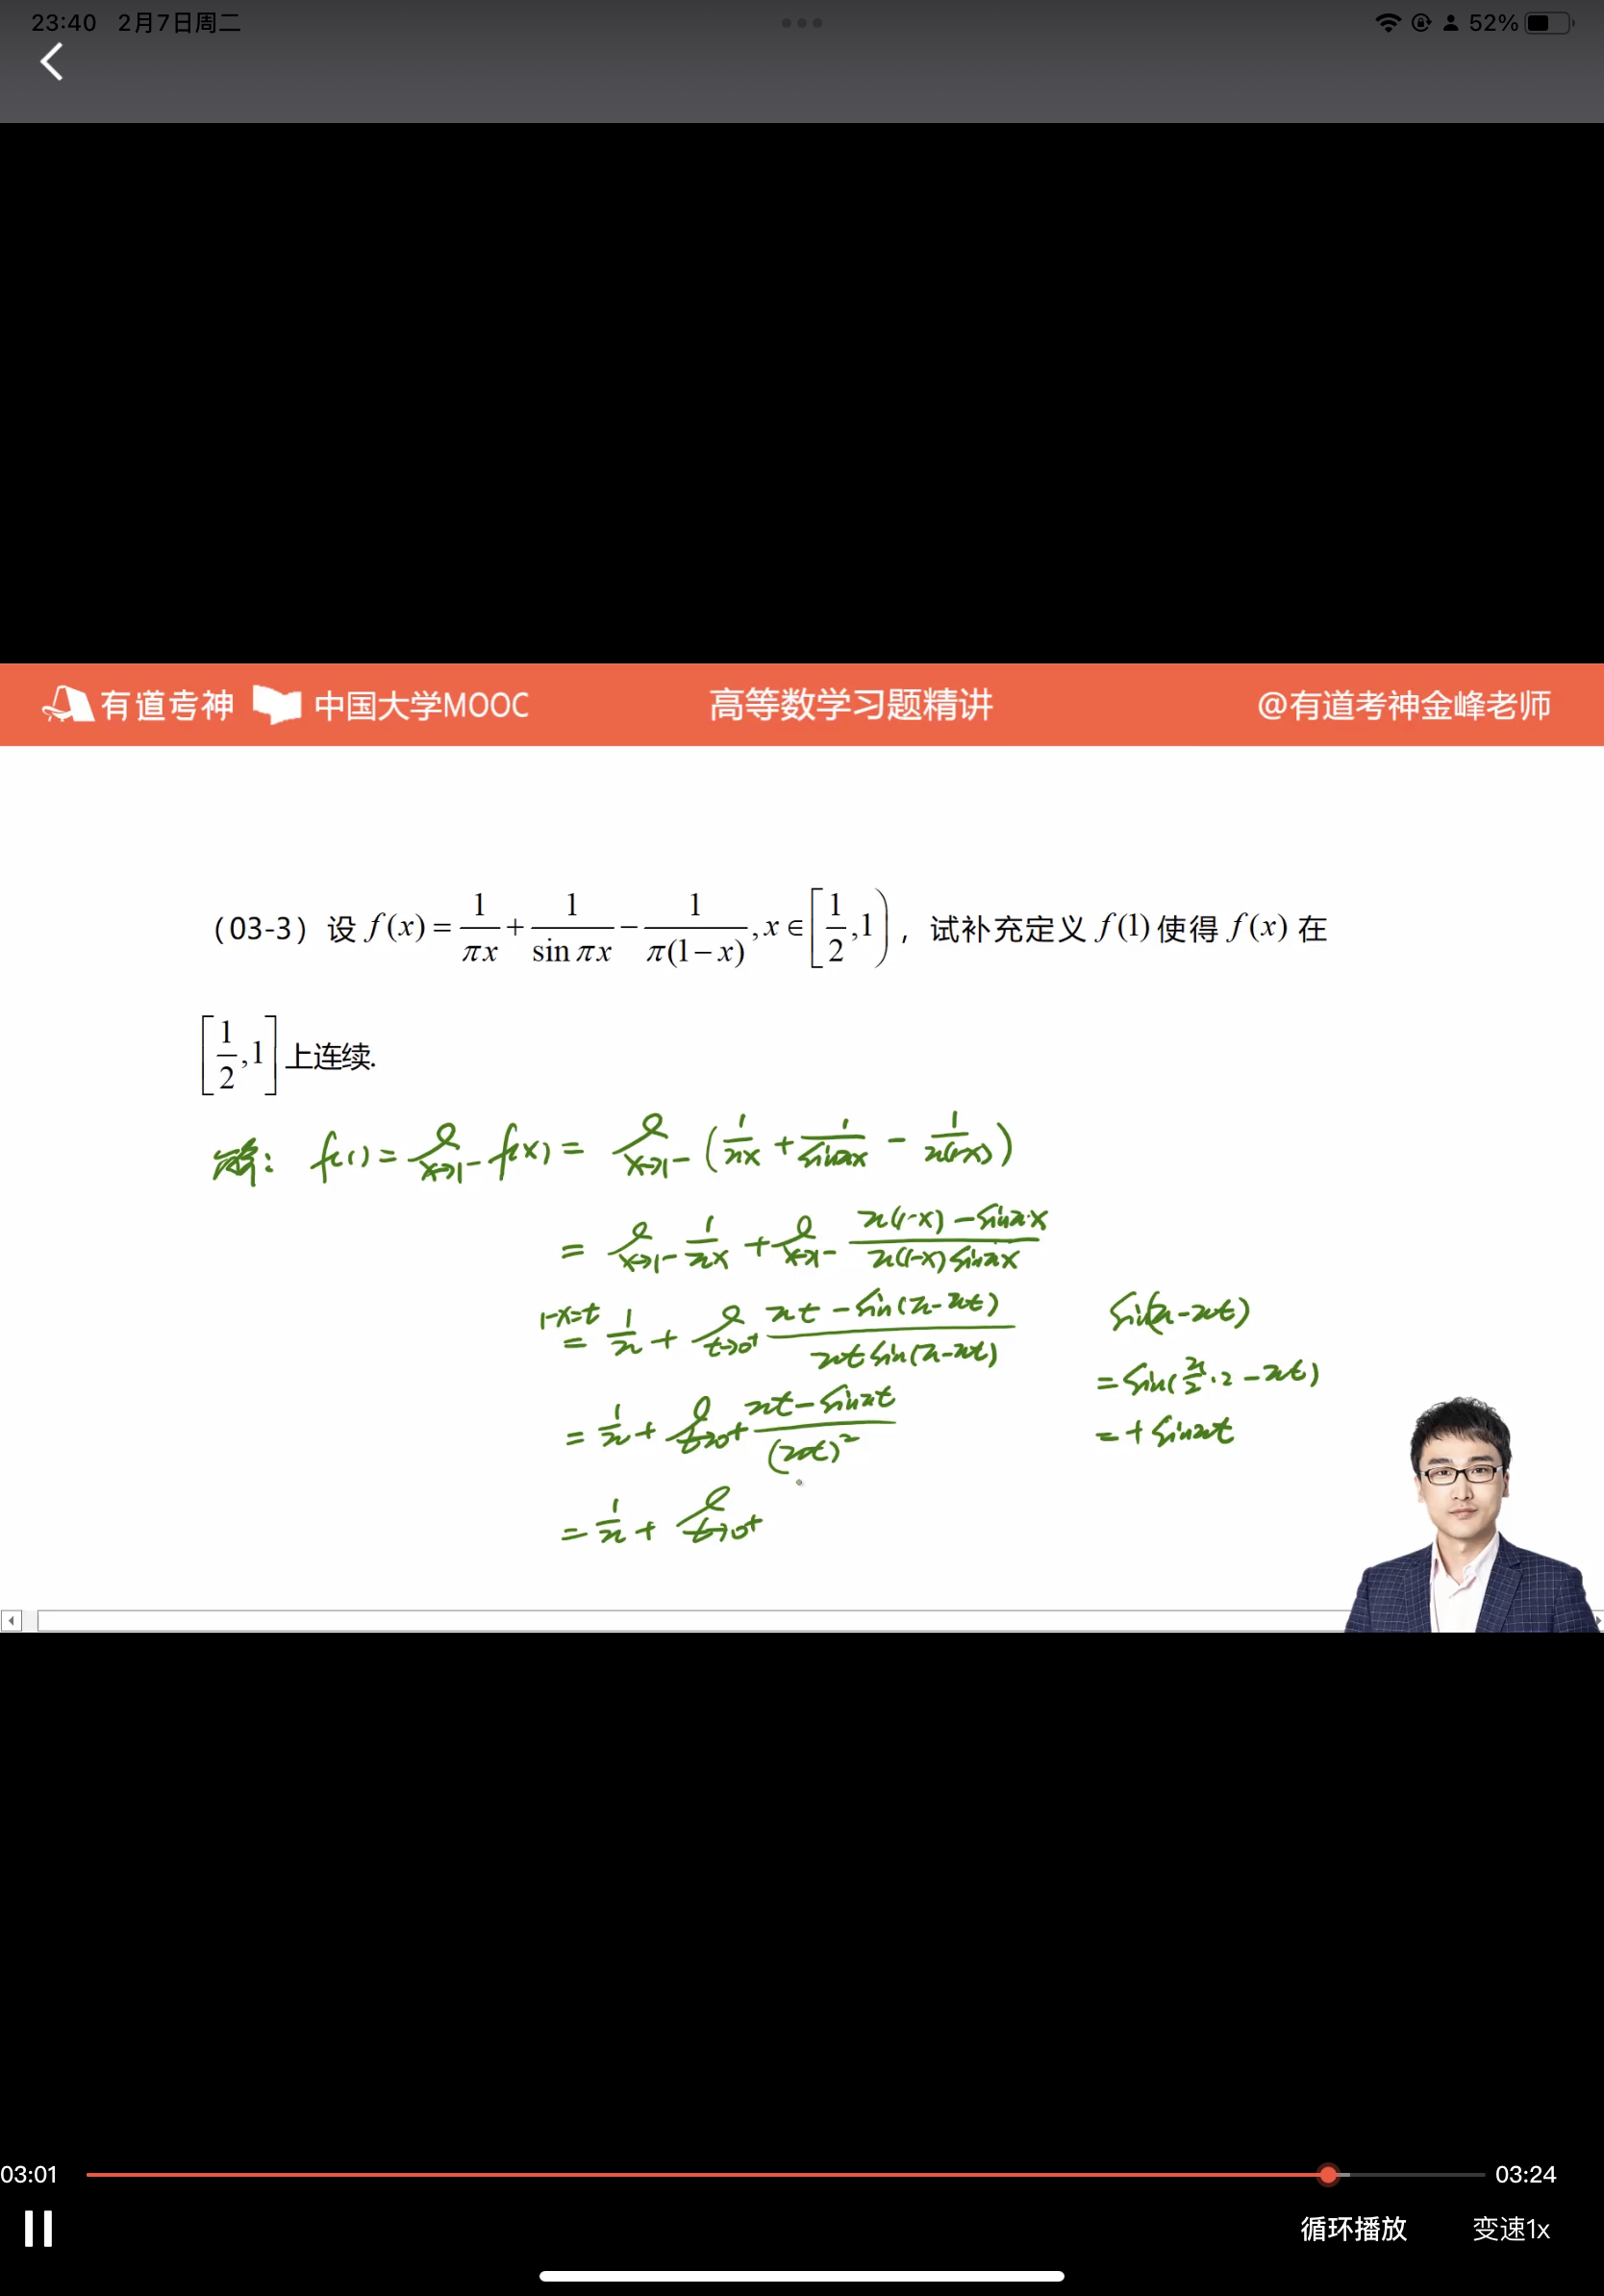 23:40 2月7日周二 52%
有道考神 中国大学MOOC 高等数学习题精讲 @有道考神金峰老师
（03-3）设 f(x) = 1/(πx) + 1/(sin πx) − 1/(π(1−x)), x ∈ [1/2, 1)，试补充定义 f(1) 使得 f(x) 在
[1/2, 1] 上连续.
解: f(1) = lim x→1− f(x) = lim x→1− (1/(πx) + 1/(sinπx) − 1/(π(1−x)))
= lim x→1− 1/(πx) + lim x→1− (π(1−x) − sinπx)/(π(1−x) sinπx)
1−x=t
= 1/π + lim t→0+ (πt − sin(π−πt))/(πt sin(π−πt))
sin(π−πt)
= sin(π/2·2 − πt)
= + sinπt
= 1/π + lim t→0+ (πt − sinπt)/(πt)²
= 1/π + lim t→0+
03:01 03:24
循环播放 变速1x